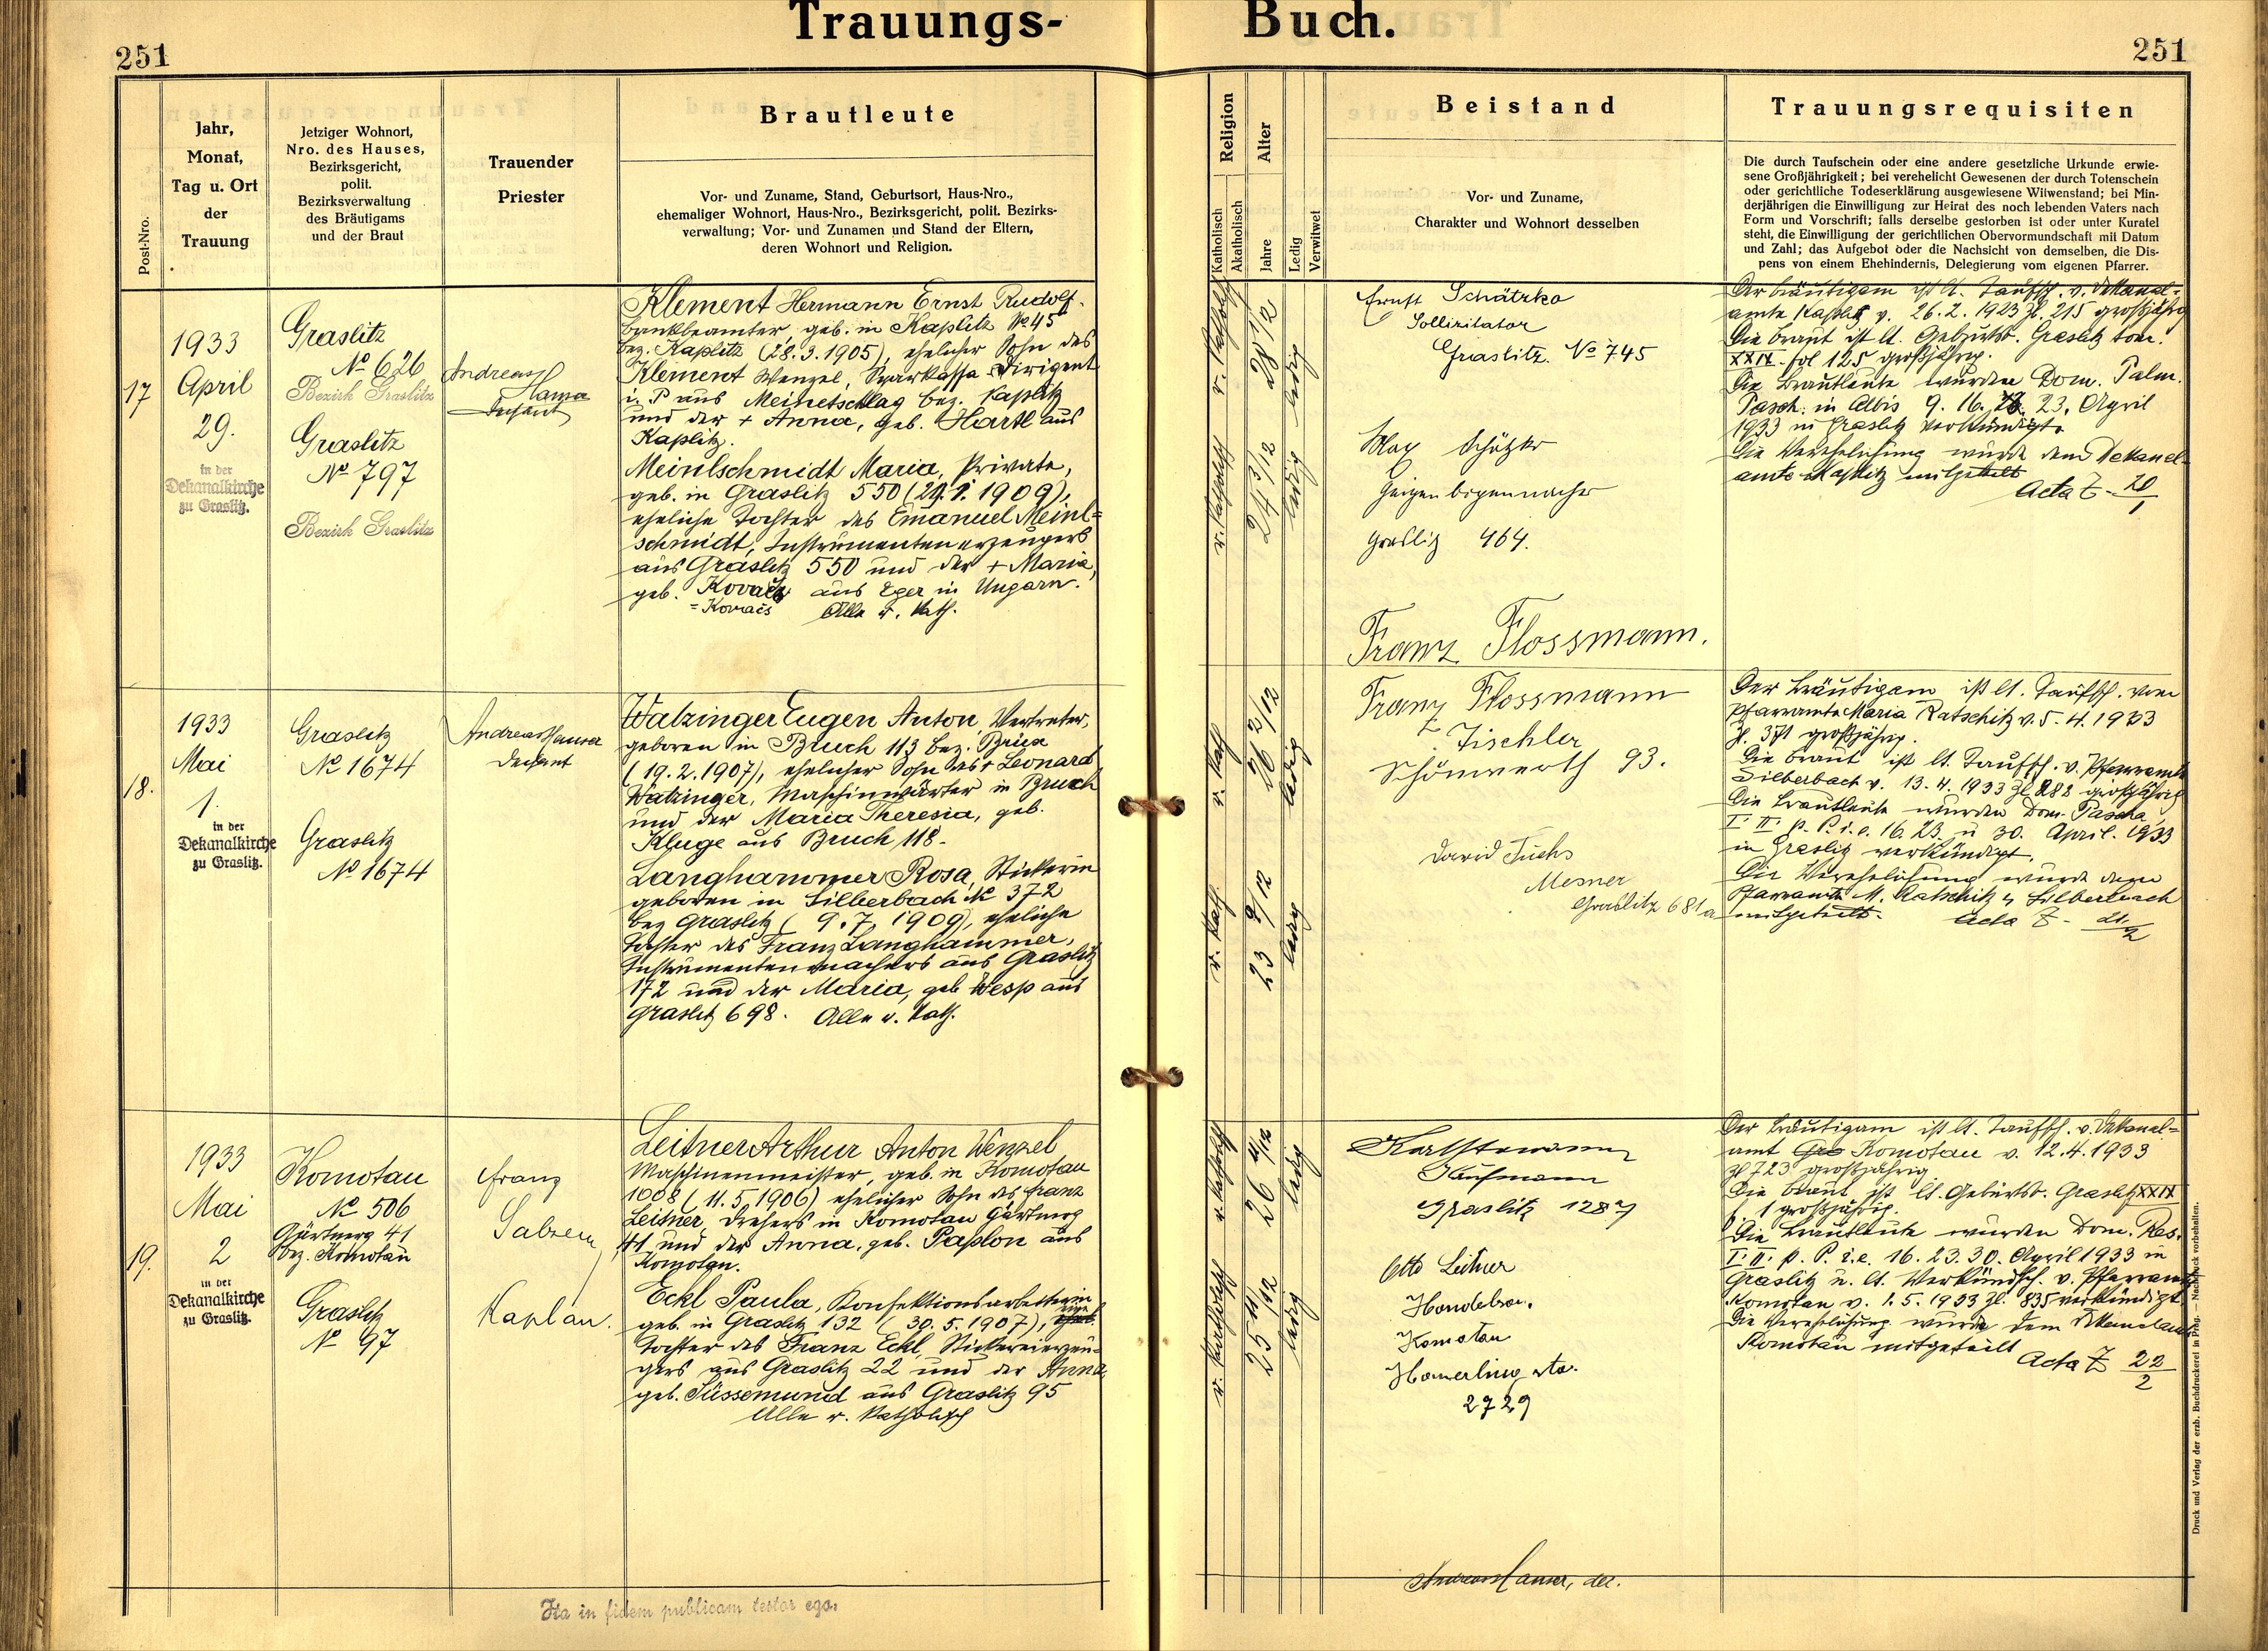 Trauungs-
Buch.
251
251
Post-Nro.
Jahr,
Monat,
Tag u. Ort
der
Trauung
Jetziger Wohnort,
Nro. des Hauses,
Bezirksgericht,
polit.
Bezirksverwaltung
des Bräutigams
und der Braut
Trauender
Priester
Brautleute
Vor- und Zuname, Stand, Geburtsort, Haus-Nro.,
ehemaliger Wohnort, Haus-Nro., Bezirksgericht, polit. Bezirks-
verwaltung; Vor- und Zunamen und Stand der Eltern,
deren Wohnort und Religion.
Religion
Katholisch
Akatholisch
Alter
Jahre
Ledig
Verwitwet
Beistand
Vor- und Zuname,
Charakter und Wohnort desselben
Trauungsrequisiten
Die durch Taufschein oder eine andere gesetzliche Urkunde erwie-
sene Großjährigkeit; bei verehelicht Gewesenen der durch Totenschein
oder gerichtliche Todeserklärung ausgewiesene Witwenstand; bei Min-
derjährigen die Einwilligung zur Heirat des noch lebenden Vaters nach
Form und Vorschrift; falls derselbe gestorben ist oder unter Kuratel
steht, die Einwilligung der gerichtlichen Obervormundschaft mit Datum
und Zahl; das Aufgebot oder die Nachsicht von demselben, die Dis-
pens von einem Ehehindernis, Delegierung vom eigenen Pfarrer.
17
1933
April
29.
in der
Dekanalkirche
zu Graslitz.
Graslitz
No 626
Bezirk Graslitz
Graslitz
No 797
Bezirk Graslitz
Andreas
Hauser
Dechant
Klement Hermann Ernst Rudolf
Bankbeamter, geb. in Kaplitz No 45
bez. Kaplitz (28.3.1905), ehelicher Sohn des
Klement Wenzel, Sparkassa-Dirigent
i. P aus Meinetschlag bez. Kaplitz
und der + Anna, geb. Hartl aus
Kaplitz.
Meinlschmidt Maria, Private,
geb. in Graslitz 550 (29.1.1909),
eheliche Tochter des Emanuel Meinl-
schmidt, Instrumentenerzeugers
aus Graslitz 550 und der + Maria,
geb. Kovacs aus Eger in Ungarn.
= Kovacs Alle r. kath.
r. katholisch
28 1/12
ledig
r. katholisch
24 3/12
ledig
Ernst Schätzko
Sollizitator
Graslitz. No 745
Max Schötzko
Geigenbogenmacher
Graslitz 464.
Der Bräutigam ist lt. Taufsch. v. Dekanal-
amte Kaplitz v. 26.2.1923 Zl. 215 großjährig
Die Braut ist lt. Geburtsb. Graslitz tom.
XXIX. fol 125 großjährig.
Die Brautleute wurden Dom. Palm.
Pasch. in Albis 9. 16. 23. April
1933 in Graslitz verkündigt.
Die Verehelichung wurde dem Dekanal-
amte Kaplitz mitgeteilt
Acta Z - 20/1
Franz Flossmann.
18.
1933
Mai
1.
in der
Dekanalkirche
zu Graslitz.
Graslitz
No 1674
Graslitz
No 1674
Andreas Hauser
Dechant
Watzinger Eugen Anton, Vertreter,
geboren in Bruch 113 bez. Brüx
(19.2.1907), ehelicher Sohn des + Leonard
Watzinger, Maschinwärter in Bruch
und der Maria Theresia, geb.
Kluge aus Bruch 118.
Langhammer Rosa, Stickerin
geboren in Silberbach No 372
bez Graslitz (9.7.1909), eheliche
Tochter des Franz Langhammer,
Instrumentenmachers aus Graslitz
172 und der Maria, geb Wesp aus
Graslitz 698. Alle r. kath.
r. kath
26 2/12
ledig
r. kath.
23 9/12
ledig
Franz Flossmann
Tischler
Schönwerth 93.
David Fuchs
Mesner
Graslitz 681a
Der Bräutigam ist lt. Taufsch. vom
Pfarramte Maria Ratschitz v. 5.4.1933
Zl. 371 großjährig.
Die Braut ist lt. Taufsch. v. Pfarramte
Silberbach v. 13.4.1933 Zl 282 großjährig
Die Brautleute wurden Dom. Pascha,
I. II. p. P. i.e. 16. 23. u 30. April. 1933
in Graslitz verkündigt.
Die Verehelichung wurde dem
Pfarramte M. Ratschitz u Silberbach
mitgeteilt. Acta Z - 21/2
19.
1933
Mai
2
in der
Dekanalkirche
zu Graslitz.
Komotau
No 506
Gärtnerg 41
bez. Komotau
Graslitz
No 97
Franz
Kaplan.
Leitner Arthur Anton Wenzel
Maschinenmeister, geb. in Komotau
1008 (11.5.1906) ehelicher Sohn des Franz
Leitner, Drehers in Komotau Gärtnerg
41 und der Anna, geb. Paplon aus
Komotau.
Eckl Paula, Konfektionsarbeiterin
geb. in Graslitz 132 (30.5.1907),
Tochter des Franz Eckl, Stickereierzeu-
gers aus Graslitz 22 und der Anna
geb. Süssemund aus Graslitz 95
Alle r. katholisch
r. katholisch
26 11/12
ledig
r. katholisch
25 11/12
ledig
Kaufmann
Graslitz 1287
Otto Leitner
Komotau
Hamerling str.
2729
Der Bräutigam ist lt. Taufsch. v. Dekanal-
amt Komotau v. 12.4.1933
Zl 723 großjährig
Die Braut ist lt. Geburtsb. Graslitz XXIX
f. 1 großjährig.
Die Brautleute wurden Dom. Res.
I. II. p. P. i.e. 16. 23. 30. April 1933 in
Graslitz u. lt. Verkündsch. v. Pfarramt
Komotau v. 1.5.1933 Zl. 835 verkündigt.
Die Verehelichung wurde dem Dekanalamt
Komotau mitgeteilt
Acta Z 22/2
Ita in fidem publicam testor ego.
Andreas Hauser, dec.
Druck und Verlag der erzb. Buchdruckerei in Prag. — Nachdruck vorbehalten.